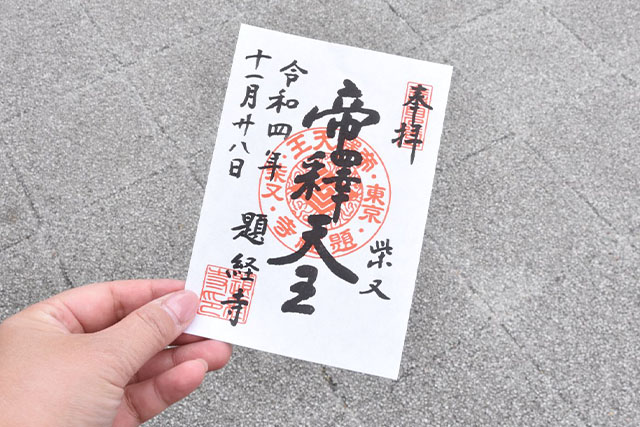 奉拝
柴又
帝釋天王
令和四年
十一月廿八日
題経寺
帝釋天王・柴又・題経寺・東京・